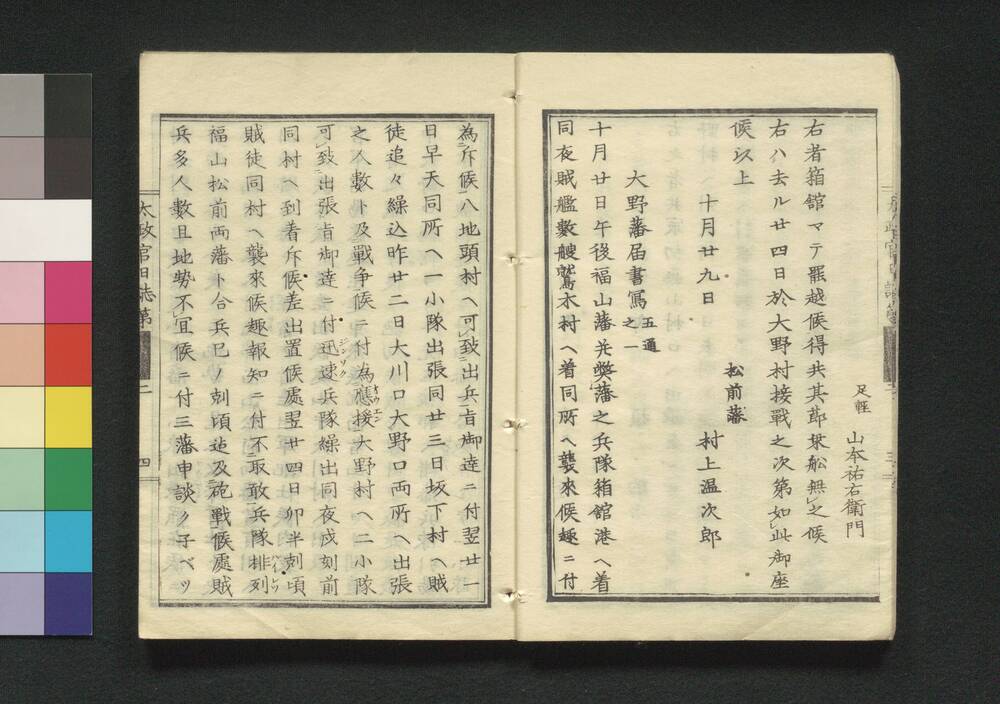 足軽 山本祐右衛門
右者箱館マテ罷越候得共其節乗舩無之候
右ハ去ル廿四日於大野村接戰之次第如此御座
候以上
十月廿九日
松前藩 村上温次郎
大野藩届書寫 五通之一
十月廿日午後福山藩并弊藩之兵隊箱館港ヘ着
同夜賊艦數艘鷲木村ヘ着同所ヘ襲來候趣ニ付
為斥候八地頭村ヘ可致出兵旨御達ニ付翌廿一
日早天同所ヘ一小隊出張同廿三日坂下村ヘ賊
徒追々繰込昨廿二日大川口大野口両所ヘ出張
之人數ト及戰争候ニ付為應援大野村ヘ二小隊
可致出張旨御達ニ付迅速兵隊繰出同夜戌刻前
同村ヘ到着斥候差出置候處翌廿四日卯半刻頃
賊徒同村ヘ襲來候趣報知ニ付不取敢兵隊排列
福山松前両藩ト合兵巳ノ刻頃迠及砲戰候處賊
兵多人數且地勢不宜候ニ付三藩申談シ子ベツ
太政官日誌第
二
四